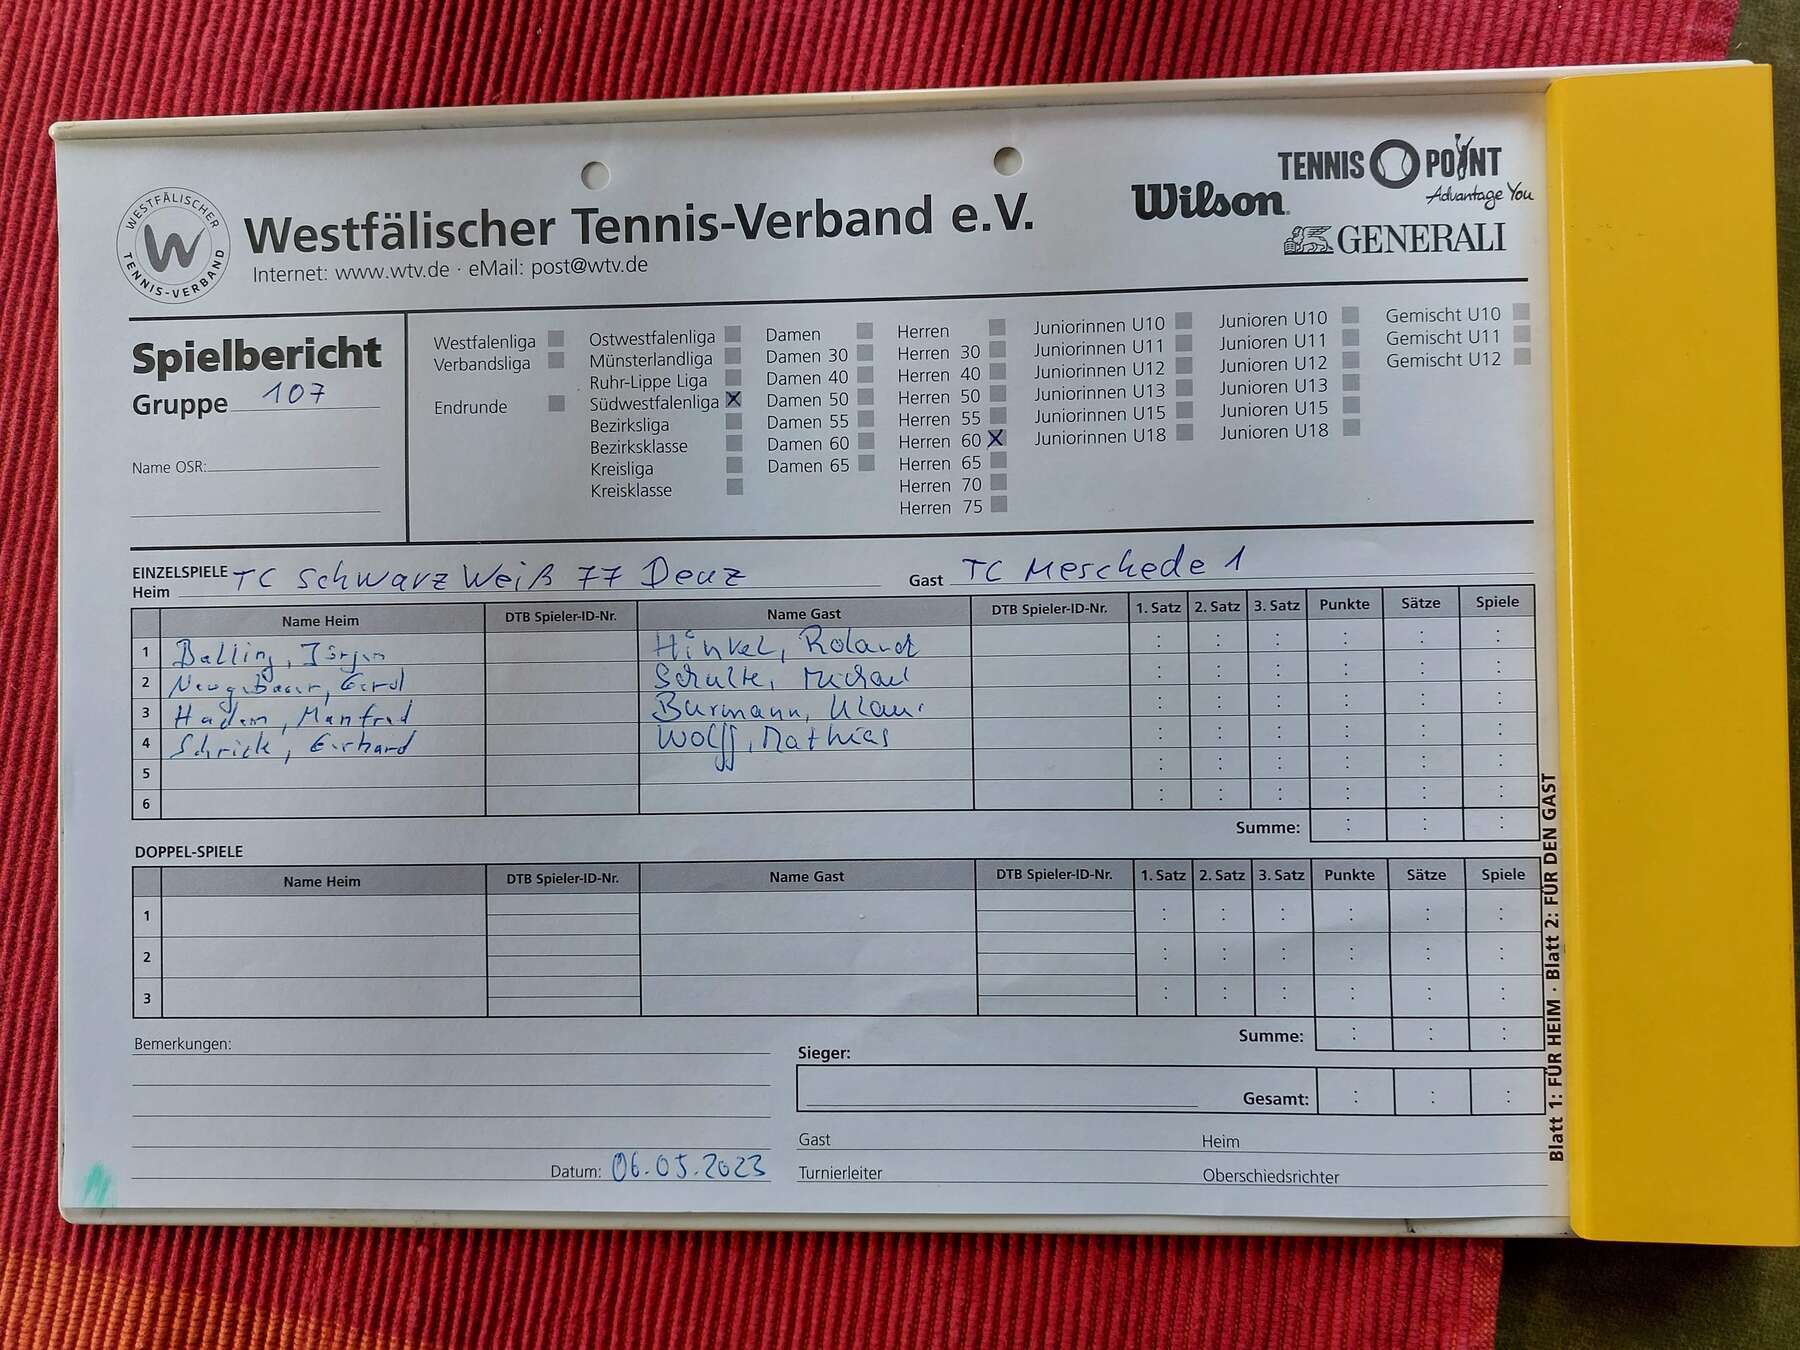 WESTFÄLISCHER TENNIS-VERBAND
Westfälischer Tennis-Verband e.V.
Internet: www.wtv.de · eMail: post@wtv.de
Wilson
TENNIS POINT
Advantage You
GENERALI
Spielbericht
Gruppe 107
Name OSR:
Westfalenliga
Verbandsliga
Endrunde
Ostwestfalenliga
Münsterlandliga
Ruhr-Lippe Liga
Südwestfalenliga X
Bezirksliga
Bezirksklasse
Kreisliga
Kreisklasse
Damen
Damen 30
Damen 40
Damen 50
Damen 55
Damen 60
Damen 65
Herren
Herren 30
Herren 40
Herren 50
Herren 55
Herren 60 X
Herren 65
Herren 70
Herren 75
Juniorinnen U10
Juniorinnen U11
Juniorinnen U12
Juniorinnen U13
Juniorinnen U15
Juniorinnen U18
Junioren U10
Junioren U11
Junioren U12
Junioren U13
Junioren U15
Junioren U18
Gemischt U10
Gemischt U11
Gemischt U12
EINZELSPIELE
Heim TC Schwarz Weiß 77 Deuz Gast TC Meschede 1
Name Heim DTB Spieler-ID-Nr. Name Gast DTB Spieler-ID-Nr. 1. Satz 2. Satz 3. Satz Punkte Sätze Spiele
1 Balling, Jürgen Hinkel, Roland : : : : : :
2 Schulte, Michael : : : : : :
3 Hadem, Manfred Burmann, Klaus : : : : : :
4 Schrick, Gerhard Wolff, Mathias : : : : : :
5 : : : : : :
6 : : : : : :
Summe: : : :
DOPPEL-SPIELE
Name Heim DTB Spieler-ID-Nr. Name Gast DTB Spieler-ID-Nr. 1. Satz 2. Satz 3. Satz Punkte Sätze Spiele
1 : : : : : :
2 : : : : : :
3 : : : : : :
Summe: : : :
Bemerkungen:
Sieger:
Gesamt: : : :
Gast Heim
Datum: 06.05.2023
Turnierleiter Oberschiedsrichter
Blatt 1: FÜR HEIM · Blatt 2: FÜR DEN GAST